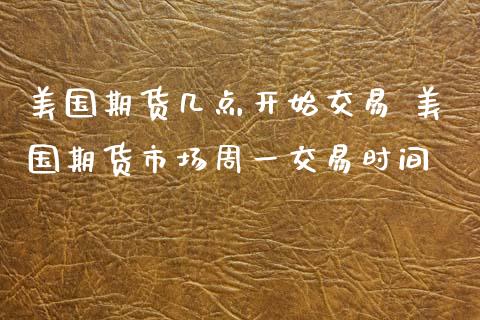 美国期货几点开始交易 美
国期货市场周一交易时间